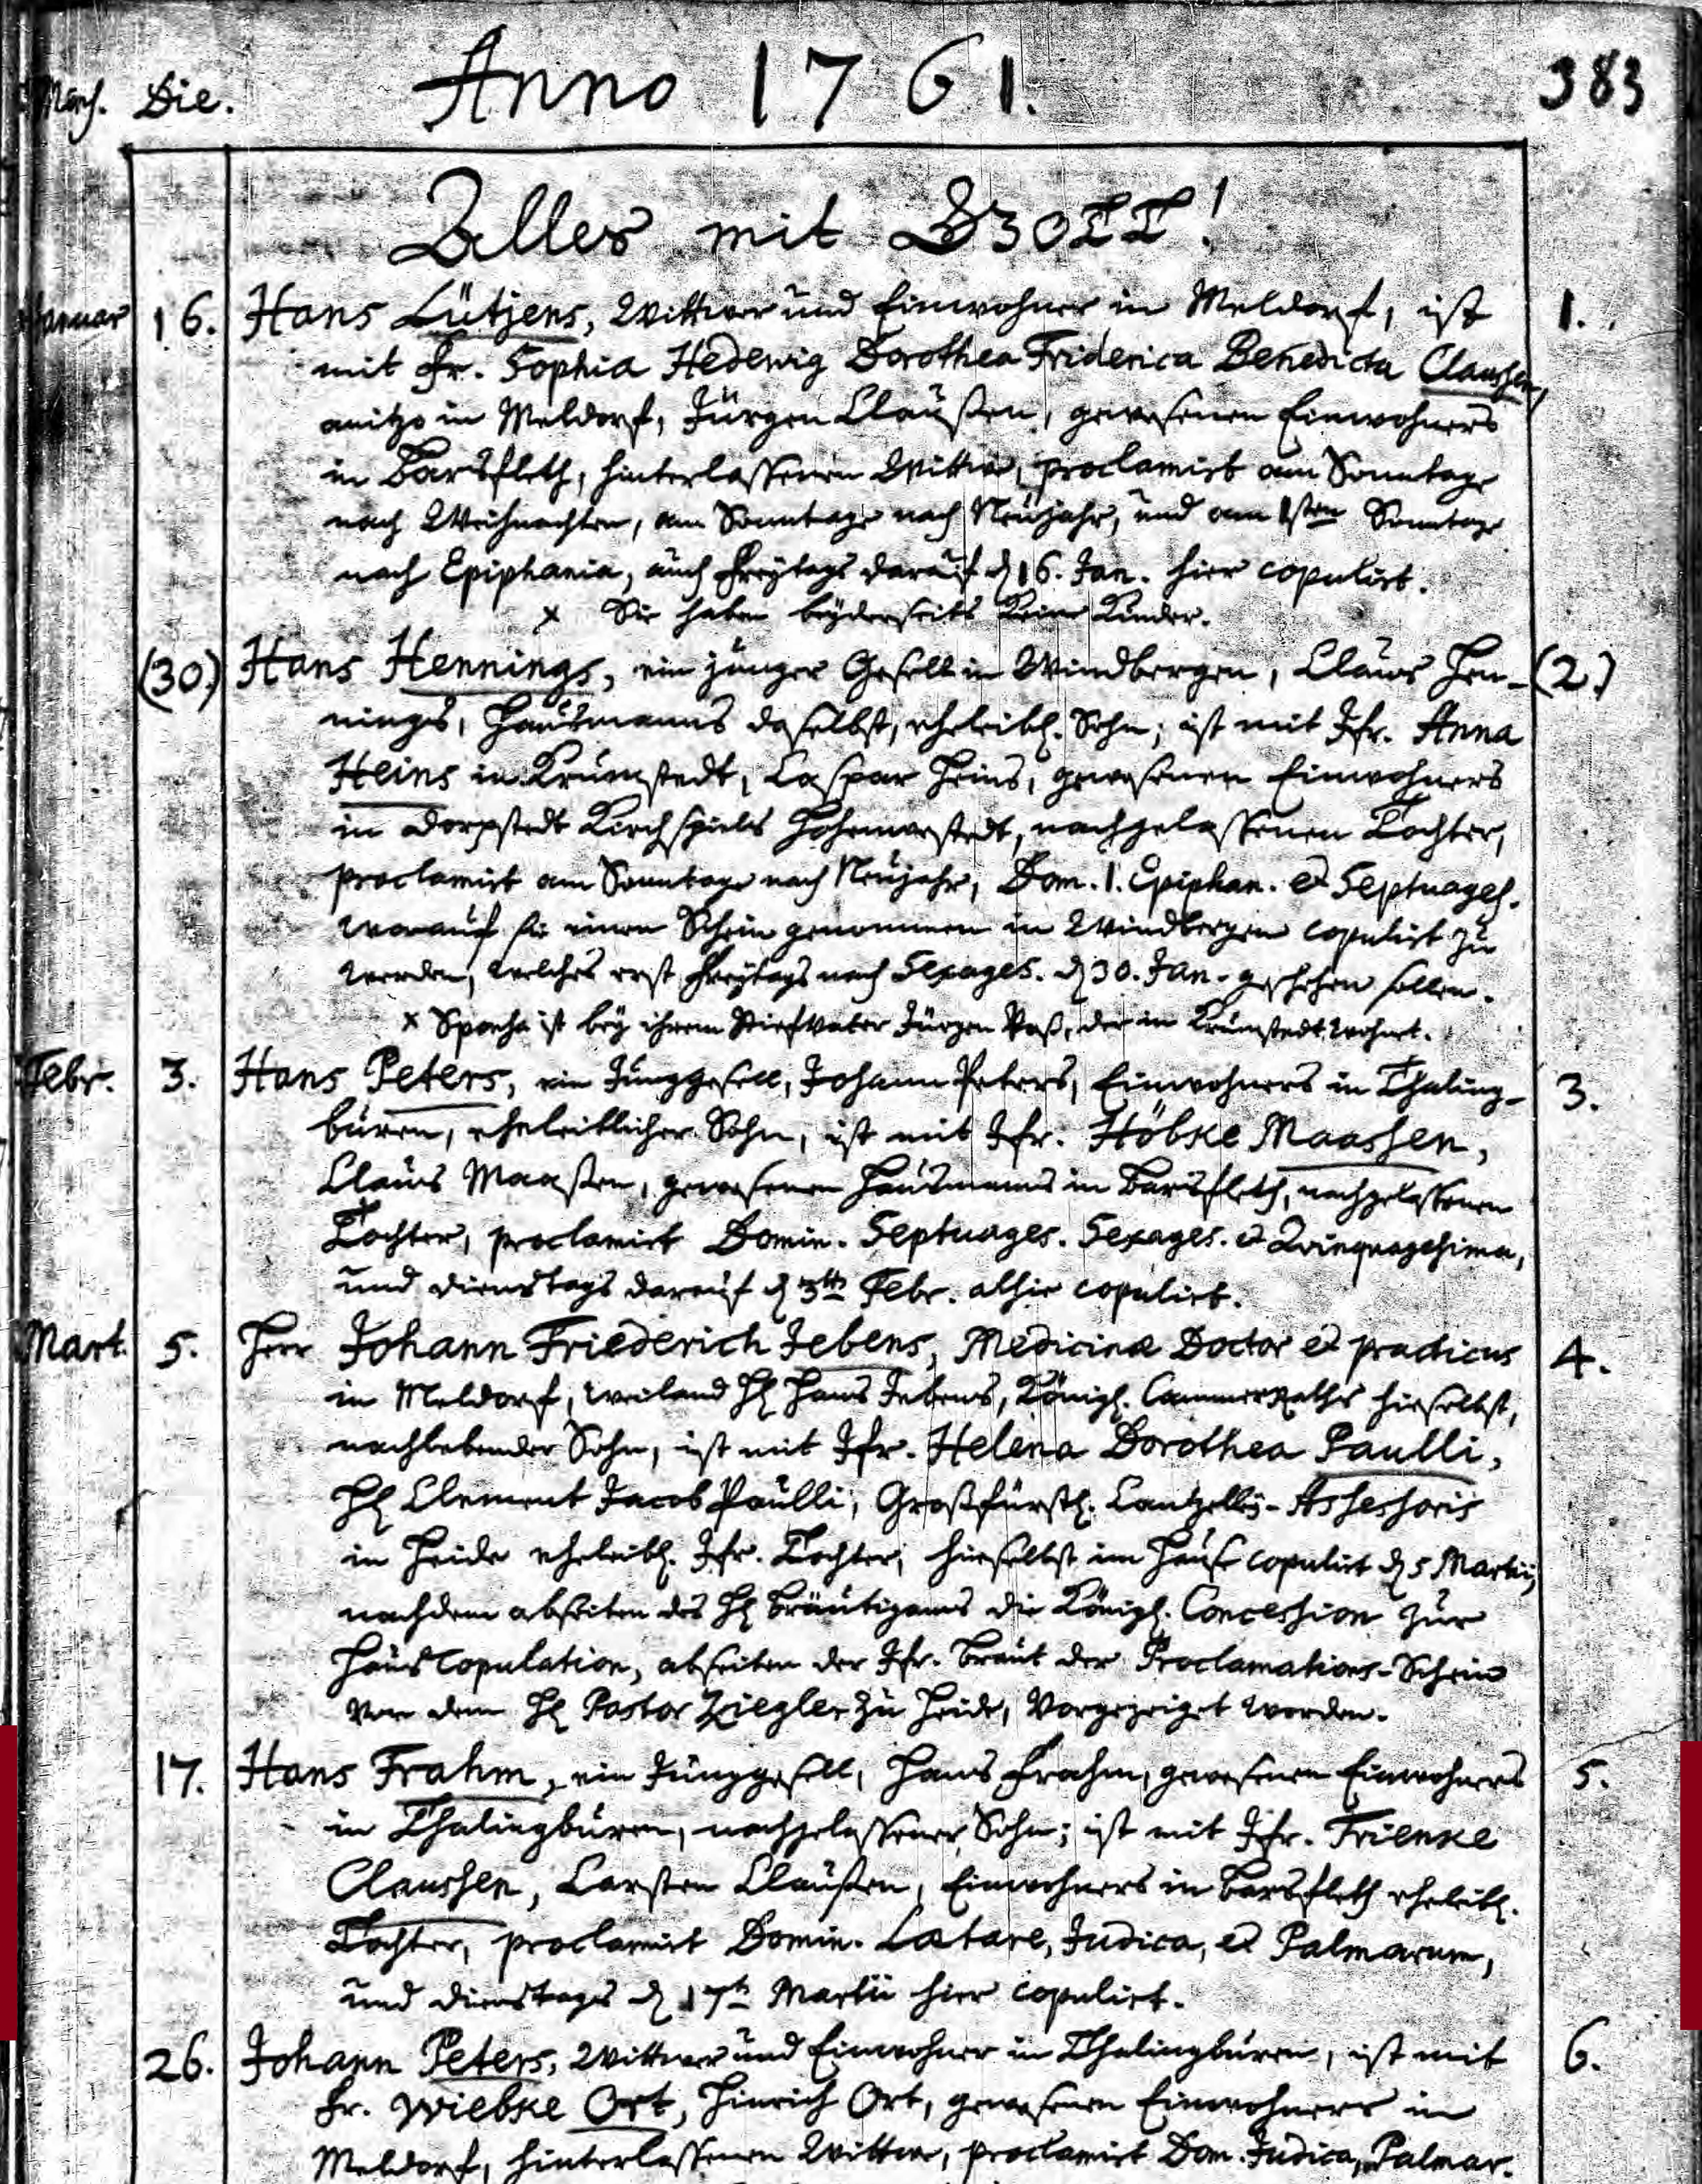 Mens. Die. Anno 1761. 383
Alles mit GOTT!
Januar 16. Hans Lütjens, Wittwer und Einwohner in Meldorf, ist 1.
mit Fr. Sophia Hedewig Dorothea Friderica Benedicta Claussen,
anitzo in Meldorf, Jürgen Claußen, gewesenen Einwohners
in Barsfleth, hinterlassenen Wittwe, proclamirt am Sonntage
nach Weihnachten, am Sonntage nach Neujahr, und am 1sten Sonntage
nach Epiphania, auch Freytags darauf d 16. Jan. hier copulirt.
x Sie haben beyderseits keine Kinder.
(30.) Hans Hennings, ein junger Gesell in Windbergen, Claus Hen- (2.)
nings, Hausmanns daselbst, eheleibl. Sohn; ist mit Jfr. Anna
Heins in Krumstedt, Caspar Heins, gewesenen Einwohners
in Dorpstedt Kirchspiels Hohenwestedt, nachgelassenen Tochter,
proclamirt am Sonntage nach Neujahr, Dom. 1. Epiphan. et Septuages.
worauf sie einen Schein genommen in Windbergen copulirt zu
werden, welches erst Freytags nach Sexages. d 30. Jan. geschehen sollen.
x Sponsa ist bey ihrem Stiefvater Jürgen Voß, der in Krumstedt wohnt.
Febr. 3. Hans Peters, ein Junggesell, Johann Peters, Einwohners in Thaling- 3.
büren, eheleiblicher Sohn, ist mit Jfr. Höbke Maassen,
Claus Maaßen, gewesenen Hausmanns in Barsfleth, nachgelassenen
Tochter, proclamirt Domin. Septuages. Sexages. et Qvinquagesima,
und Dienstags darauf d 3ten Febr. alhie copulirt.
Mart. 5. Herr Johann Friederich Jebens, Medicinæ Doctor et practicus 4.
in Meldorf, weiland H Hans Jebens, Königl. CammerRaths hieselbst,
nachlebender Sohn, ist mit Jfr. Helena Dorothea Paulli,
H Clement Jacob Paulli, Großfürstl. Cantzelley-Assessoris
in Heide eheleibl. Jfr. Tochter, hieselbst im Hause copulirt d 5 Martii,
nachdem abseiten des H Bräutigams die Königl. Concession zur
HausCopulation, abseiten der Jfr. Braut der Proclamations-Schein
von dem H Pastor Ziegler zu Heide, vorgezeiget worden.
17. Hans Frahm, ein Junggesell, Hans Frahm, gewesenen Einwohners 5.
in Thalingbüren, nachgelassener Sohn; ist mit Jfr. Trienke
Claussen, Carsten Claußen, Einwohners in Barsfleth eheleibl.
Tochter, proclamirt Domin. Lætare, Judica, et Palmarum,
und Dienstags d 17ten Martii hier copulirt.
26. Johann Peters, Wittwer und Einwohner in Thalingbüren, ist mit 6.
Fr. Wiebke Ort, Hinrich Ort, gewesenen Einwohners in
Meldorf, hinterlassenen Wittwe, proclamirt Dom. Judica, Palmar.